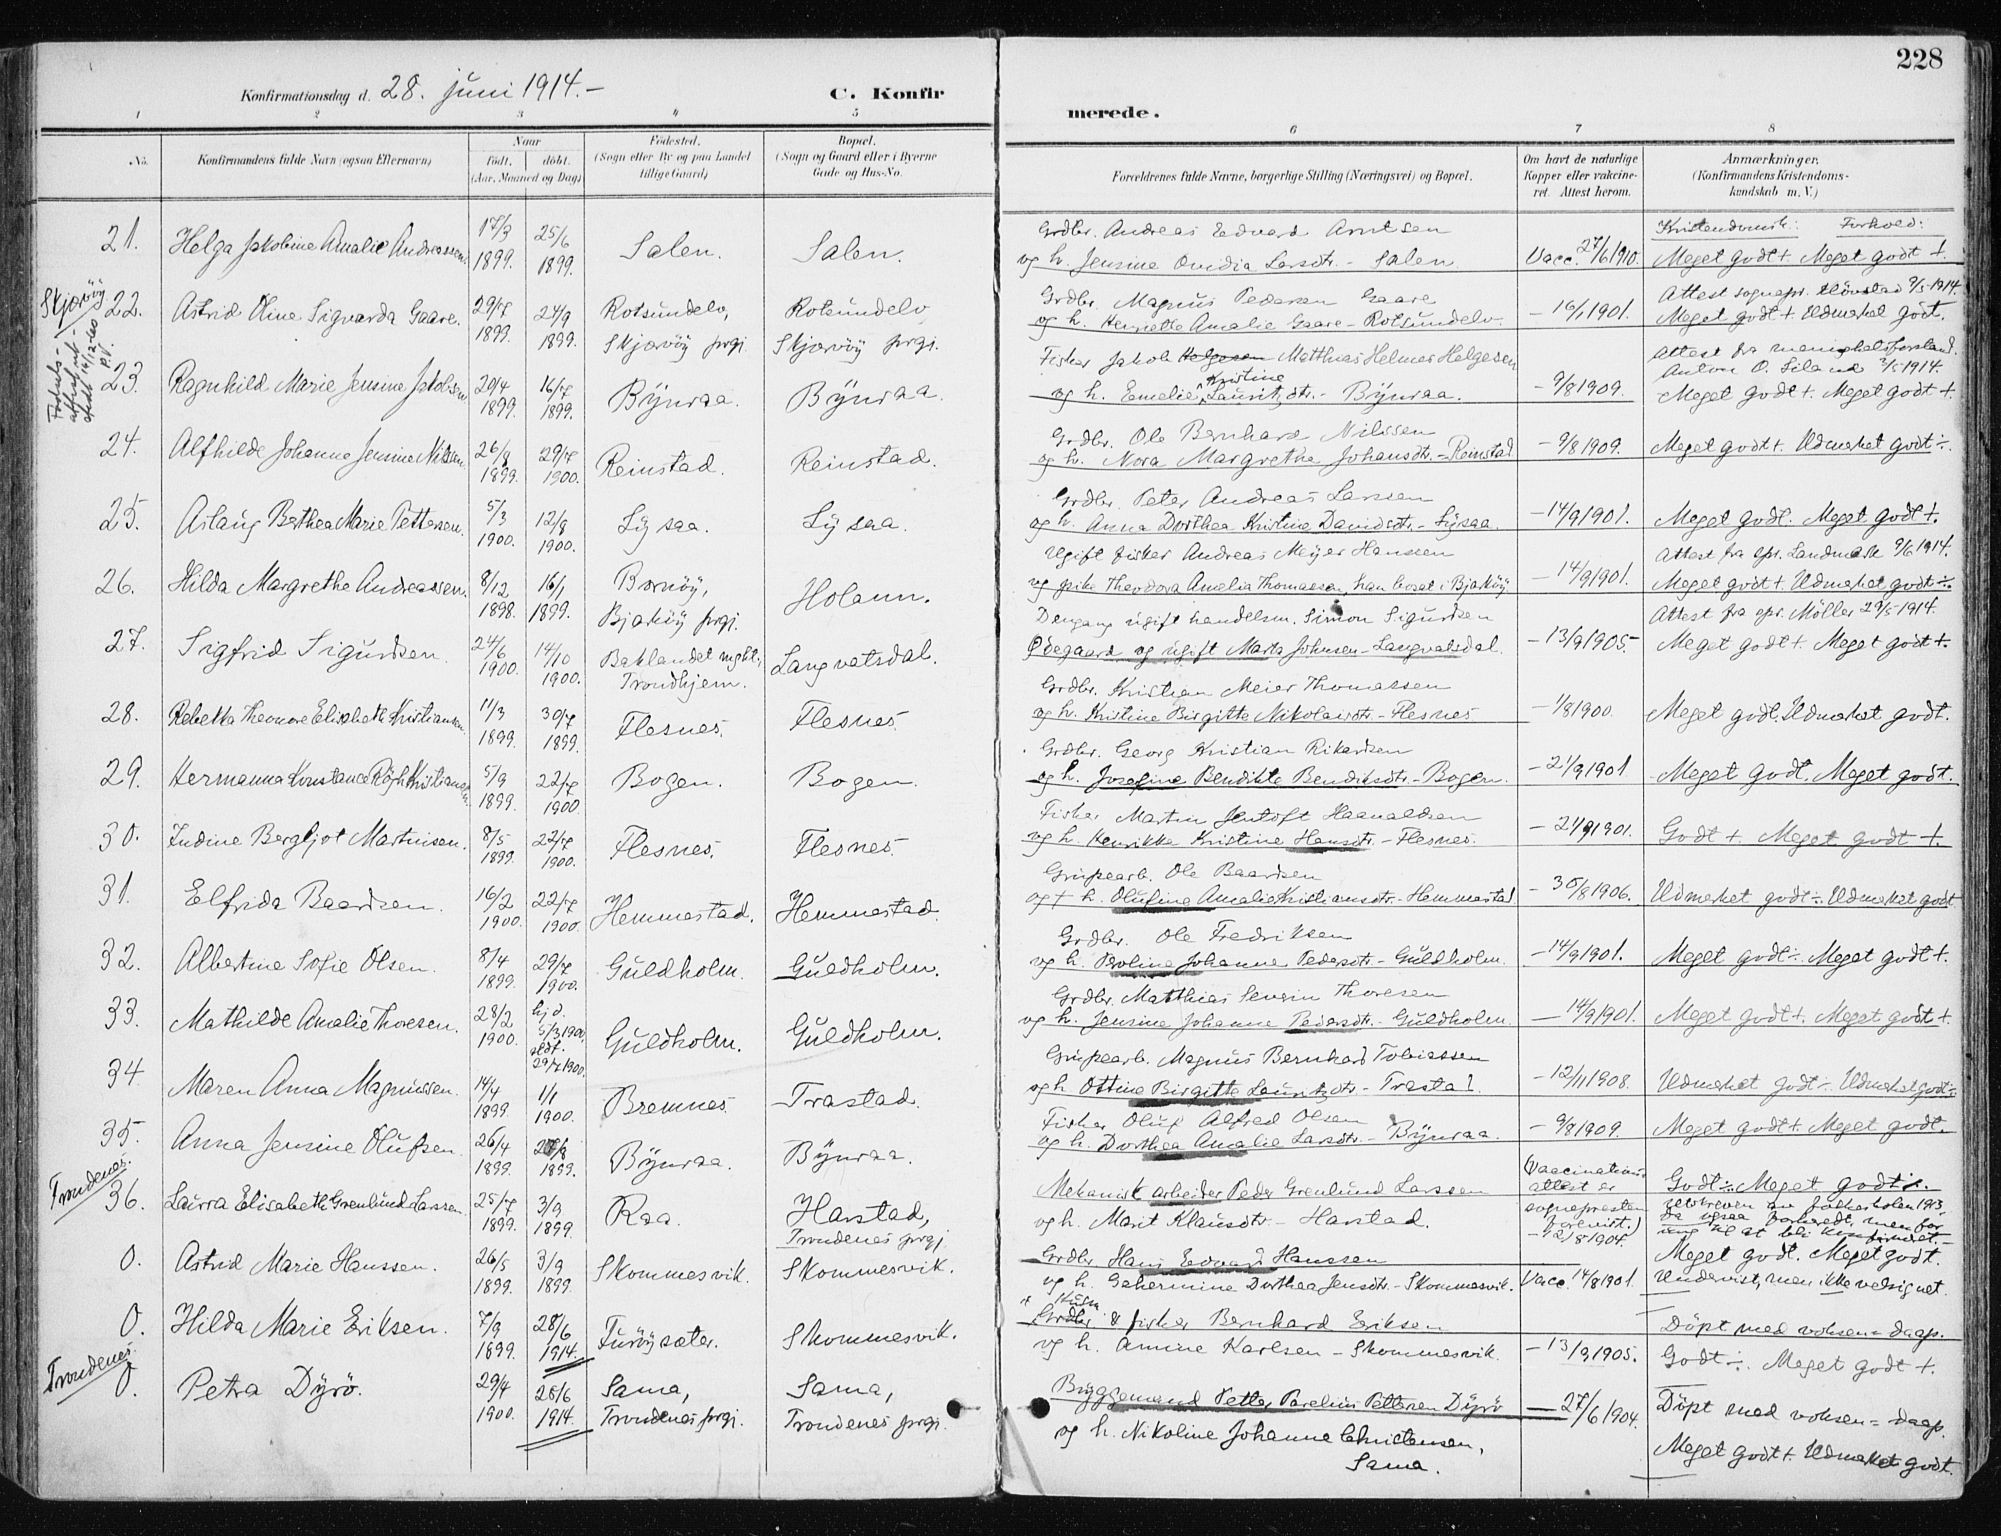 228
Konfirmationsdag d. 28. juni 1914.-
C. Konfirmerede.
1 2 3 4 5 6 7 8
No. Konfirmandens fulde Navn (ogsaa Efternavn) Naar født, døbt. (Aar, Maaned og Dag) Fødested. (Sogn eller By og paa Landet tillige Gaard) Bopæl. (Sogn og Gaard eller i Byerne Gade og Hus-No. Forældrenes fulde Navne, borgerlige Stilling (Næringsvei) og Bopæl. Om havt de naturlige Kopper eller vakcineret. Attest herom. Anmærkninger. (Konfirmandens Kristendomskundskab m. V.)
Kristendomsk: Forhold:
21. Helga Jakobine Amalie Andreassen. 17/3 1899. 25/6 1899. Salen. Salen. Grdbr. Andreas Edvard Arntsen
og h. Jensine Ovidia Larsdtr. - Salen. Vacc. 27/6 1910. Meget godt + Meget godt +
Skjærvöy
22. Astrid Oline Sigvarda Gaare. 29/7 1899. 24/9 1899. Rotsundelv, Skjærvöy prgj. Rotsundelv Skjærvöy prgj. Grdbr. Magnus Pedersen Gaare
og h. Henriette Amalie Gaare - Rotsundelv. - 16/1 1901. Attest sognepr. Hövstad 9/5 1914.
Meget godt +. Udmerket godt.
Fødsels-
attest ut-
stedt 16/12-60
P.V.
23. Ragnhild Marie Jensine Jakobsen. 20/4 1899. 16/7 1899. Bÿnraa. Bÿnraa. Fisker Jakob Helgesen Matthias Helmer Helgesen
og h. Emelie Kristine Lauritzdtr. - Bÿnraa. - 9/8 1909. Attest fra menighetsforstand.
Anton O. Siland 3/5 1914.
Meget godt +. Meget godt +.
24. Alfhilde Johanne Jensine Nilssen. 26/8 1899. 29/7 1900. Reinstad. Reinstad. Grdbr. Ole Bernhard Nilssen
og h. Nora Margrethe Johansdtr. - Reinstad - 9/8 1909. Meget godt +. Udmerket godt ÷.
25. Aslaug Berthea Marie Pettersen. 5/3 1900. 12/8 1900. Lysaa. Lysaa. Grdbr. Peter Andreas Larssen
og h. Anna Dorthea Kristine Davidsdtr. - Lysaa. - 14/9 1901. Meget godt. Meget godt +.
26. Hilda Margrethe Andreassen. 8/12 1898. 16/1 1899. Bornöy, Bjarköy prgj. Holann. Ugift fisker Andreas Meyer Hanssen
og pike Theodora Amelia Thomassen, han bosat i Bjarköy. - 14/9 1901. Attest fra spr. Landmark 9/6 1914.
Meget godt +. Udmerket godt ÷.
27. Sigfrid Sigurdsen. 24/6 1900. 14/10 1900. Baklandet mght. Trondhjem. Langvatsdal. Dengang ugift handelsm. Simon Sigurdsen
Ödegaard og ugift Marta Johnsen - Langvatsdal. - 13/9 1905. Attest fra spr. Möller 29/5 1914.
Meget godt +. Meget godt +.
28. Rebekka Theonore Elisabeth Kristiansen. 11/3 1899. 30/7 1899. Flesnes. Flesnes. Grdbr. Kristian Meier Thomassen
og h. Kristine Birgitte Nikolaisdtr. - Flesnes - 1/8 1900. Meget godt. Udmerket godt.
29. Hermanna Konstance Röjh Kristiansen. 5/9 1899. 22/7 1900. Bogen. Bogen. Grdbr. Georg Kristian Rikardsen
og h. Josefine Bendikte Bendiksdtr. - Bogen. - 21/9 1901. Meget godt. Meget godt.
30. Indine Bergljot Martinsen. 8/5 1899. 22/7 1900. Flesnes. Flesnes. Fisker Martin Jentoft Haanaldsen
og h. Henrikka Kristine Hansdtr. - Flesnes. - 21/9 1901. Godt +. Meget godt +.
31. Elfrida Baardsen. 16/2 1900. 22/7 1900. Hemmestad. Hemmestad. Grubearb. Ole Baardsen
og + h. Olufine Amalie Kristiansdtr. - Hemmestad - 30/8 1906. Udmerket godt ÷. Udmerket godt
32. Albertine Sofie Olsen. 8/4 1899. 29/7 1900. Guldholm. Guldholm. Grdbr. Ole Fredriksen
og h. Peroline Johanne Pedersdtr. - Guldholm. - 14/9 1901. Meget godt ÷. Meget godt +.
33. Mathilde Amalie Thoresen. 28/2 1900. hj.d. 5/3 1900. stdf. 29/7 1900. Guldholm. Guldholm. Grdbr. Matthias Severin Thoresen
og h. Jensine Johanne Pedersdtr. - Guldholm. - 14/9 1901. Meget godt +. Meget godt +.
34. Maren Anna Magnussen. 14/4 1899. 1/1 1900. Bremnes. Trastad. Grubearb. Magnus Bernhard Tobiassen
og h. Ottine Birgitte Lauritzdtr. - Trastad. - 12/11 1908. Udmerket godt ÷. Udmerket godt ÷
35. Anna Jensine Olufsen. 26/4 1899. 27/8 1899. Bÿnraa. Bÿnraa. Fisker Oluf Alfred Olsen
og h. Dorthea Amalie Larsdtr. - Bÿnraa. - 9/8 1909. Meget godt +. Meget godt.
Trondenes.
36. Laurra Elisabeth Grenlund Larssen. 25/7 1899. 3/9 1899. Raa. Harstad, Trondenes prgj. Mekanisk arbeider Peder Grenlund Larssen
og h. Marit Klausdtr. - Harstad. (Vaccinations attest er sognepresten forevist.) - 12/8 1904. Godt ÷. Meget godt ÷.
utskreven av folkeskolen 1913,
da ogsaa forberedt, men for
ung til at bli konfirmert. -
0. Astrid Marie Hanssen. 26/5 1899. 3/9 1899. Skommesvik. Skommesvik. Grdbr. Hans Edvard Hanssen
og h. Gehermine Dorthea Jensdtr. - Skommesvik. Vacc. 14/8 1901. Meget godt. Meget godt.
Undervist, men ikke velsignet.
0. Hilda Marie Eriksen. 7/9 1899. 28/6 1914. Furöysæter. Skommesvik. Grdbr. & fisker Bernhard Eriksen
og h. Amine Karlsen - Skommesvik. - 13/9 1905. Döpt med voksen=daap.
Godt ÷. Meget godt +.
Trondenes.
0. Petra Dyrö. 29/4 1900. 28/6 1914. Sama, Trondenes prgj. Sama, Trondenes prgj. Byggemand Petter Parelius Pettersen Dyrö
og h. Nikoline Johanne Christensen,
Sama. - 27/6 1904. Döpt med voksen=daap.
Meget godt +. Udmerket godt.